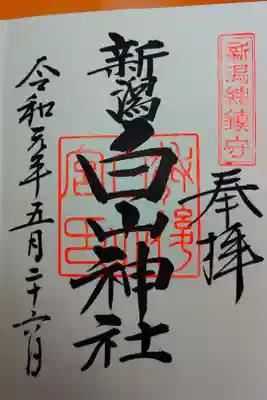 新潟總鎮守
奉拝
新潟白山神社
令和元年五月二十六日